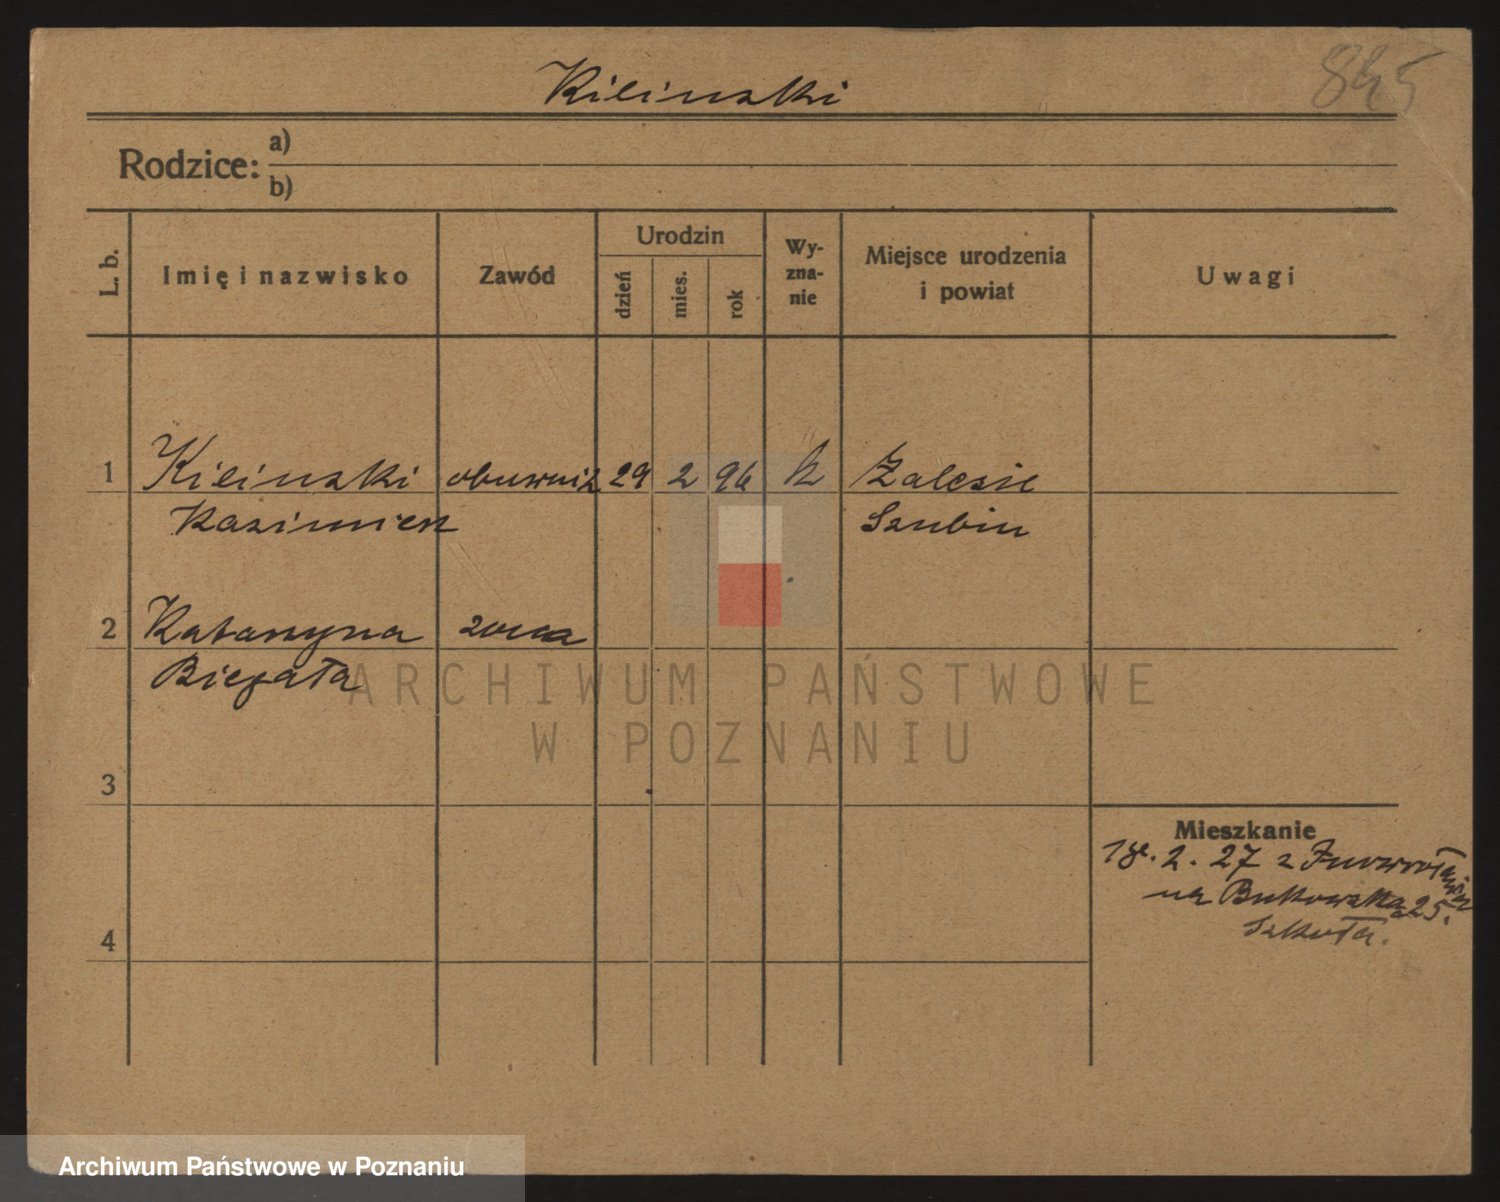 Kilinski
845
Rodzice: a)
b)
L. b.
Imię i nazwisko
Zawód
Urodzin
dzień
mies.
rok
Wy-
zna-
nie
Miejsce urodzenia
i powiat
Uwagi
1 Kilinski obuwnik 29 2 96 k Zalesie
Kazimierz Szubin
2 Katarzyna żona
Biegała
ARCHIWUM PAŃSTWOWE
W POZNANIU
3
Mieszkanie
18. 2. 27 z Inowrocławia
na Bukowska 25.
Szkoła.
4
Archiwum Państwowe w Poznaniu